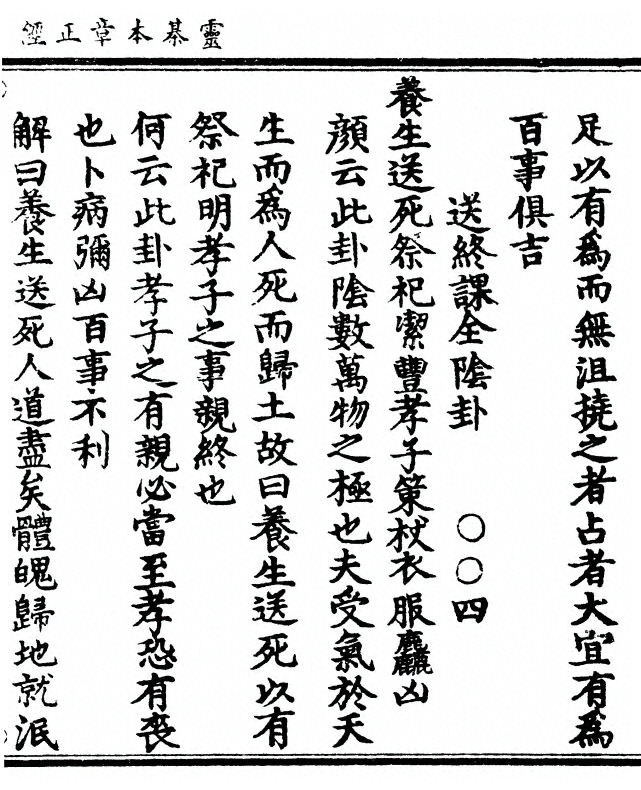 靈棊本章正經
足以有爲而無沮撓之者占者大宜有爲
百事俱吉
送終課全陰卦 〇〇四
養生送死祭祀潔豐孝子策杖衣服麤凶
顔云此卦陰數萬物之極也夫受氣於天
生而爲人死而歸土故曰養生送死以有
祭祀明孝子之事親終也
何云此卦孝子之有親必當至孝恐有喪
也卜病彌凶百事不利
解曰養生送死人道盡矣體魄歸地就泯